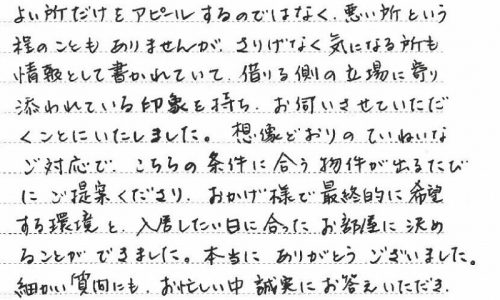 よい所だけをアピールするのではなく、悪い所という
程のこともありませんが、さりげなく気になる所も
情報として書かれていて、借りる側の立場に寄り
添われている印象を持ち、お伺いさせていただ
くことにいたしました。想像どおりのていねいな
ご対応で、こちらの条件に合う物件が出るたび
にご提案くださり、おかげ様で最終的に希望
する環境と、入居したい日に合ったお部屋に決め
ることができました。本当にありがとうございました。
細かい質問にも、お忙しい中誠実にお答えいただき、